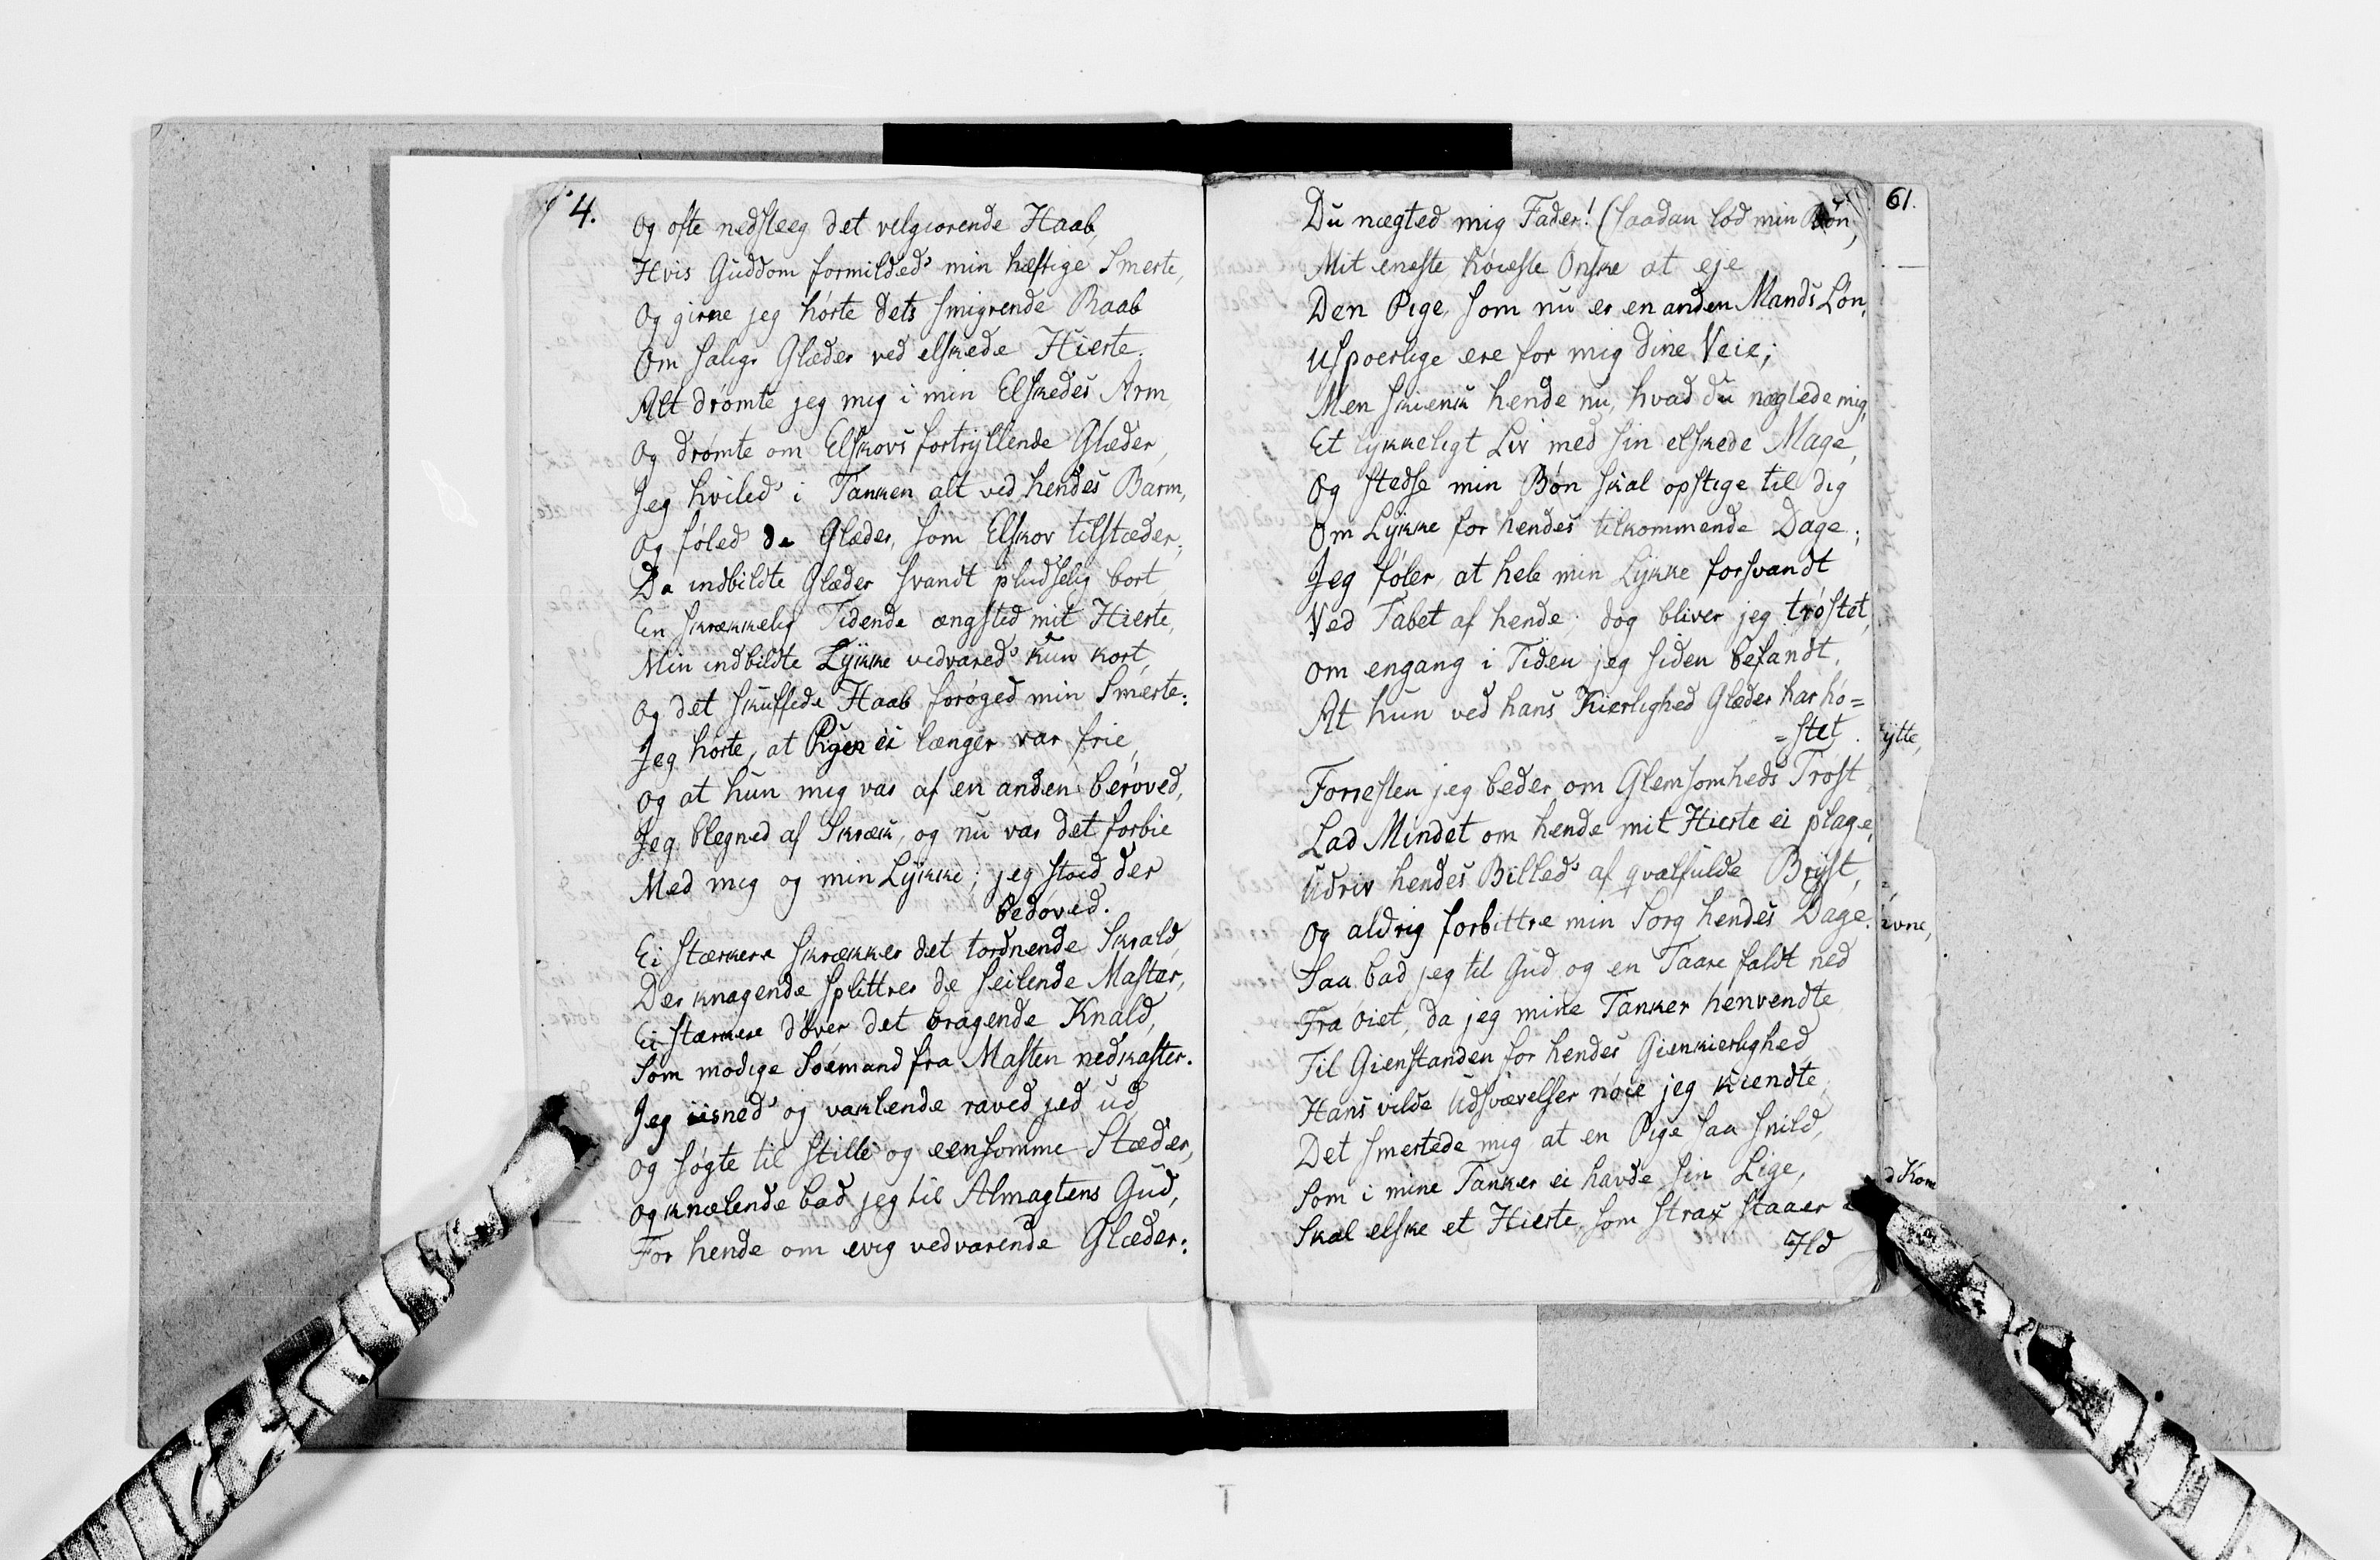 4.
Og ofte nedsteeg det velgiørende Haab,
Hvis Guddom formilded' min hæftige Smerte,
Og girne jeg hørte dets smigrende Raab
Om salige Glæder ved elskede Hierte.
Alt drømte jeg mig i min Elskedes Arm
Og drømte om Elskovs fortryllende Glæder,
Jeg hviled' i Tanken alt ved hendes Barm,
Og føled de Glæder, som Elskov tilstæder,
Da indbildte Glæder svandt pludselig bort,
En skrækkelig Tidende ængsted mit Hierte,
Min indbildte Lykke vedvared' kun kort,
Og det skuffede Haab forøged min Smerte:
Jeg hørte, at Pigen ei længer var frie,
Og at hun mig var af en anden berøved,
Jeg blegned af Skræk, og nu var det forbie
Med mig og min Lykke; jeg stoed der
bedøved.
Ei stærkere skrækker det tordnende Skrald,
Der knagende splittrer de seilende Master,
Ei stærkere døver det bragende Knald,
Som modige Søemand fra Masten nedkaster.
Jeg iisned' og vaklende raved jed ud
Og søgte til stille og eensomme Stæder,
Og knælende bad jeg til Almagtens Gud,
For hende om evig vedvarende Glæder:
Du nægted mig Fader! (saadan lød min Bøn,
Mit eneste høieste Ønske at eje
Den Pige, som nu er en anden Mands Løn,
Uspoerlige ere for mig dine Veie;
Men skienk hende nu, hvad du nægtede mig,
Et lykkeligt Liv med sin elskede Mage,
Og stedse min Bøn skal opstige til dig
Om Lykke for hendes tilkommende Dage;
Jeg føler, at hele min Lykke forsvandt
Ved Tabet af hende; dog bliver jeg trøstet,
Om engang i Tiden jeg siden befandt,
At hun ved hans Kierlighed Glæder har hø=
=stet.
Forresten jeg beder om Glemsomheds Trøst
Lad Mindet om hende mit Hierte ei plage,
Udriv hendes Billed' af qvalfulde Bryst,
Og aldrig forbittre min Sorg hendes Dage.
Saa bad jeg til Gud og en Taare faldt ned
Fra Øiet, da jeg mine Tanker henvendte
Til Gienstanden for hendes Gienkierlighed,
Hans vilde Udsværelser nøie jeg kiendte,
Det smertede mig at en Pige saa snild,
Som i mine Tanker ei havde sin Lige,
Skal elske et Hierte, som strax staaer
Ild
61.
ytte,
d Kom